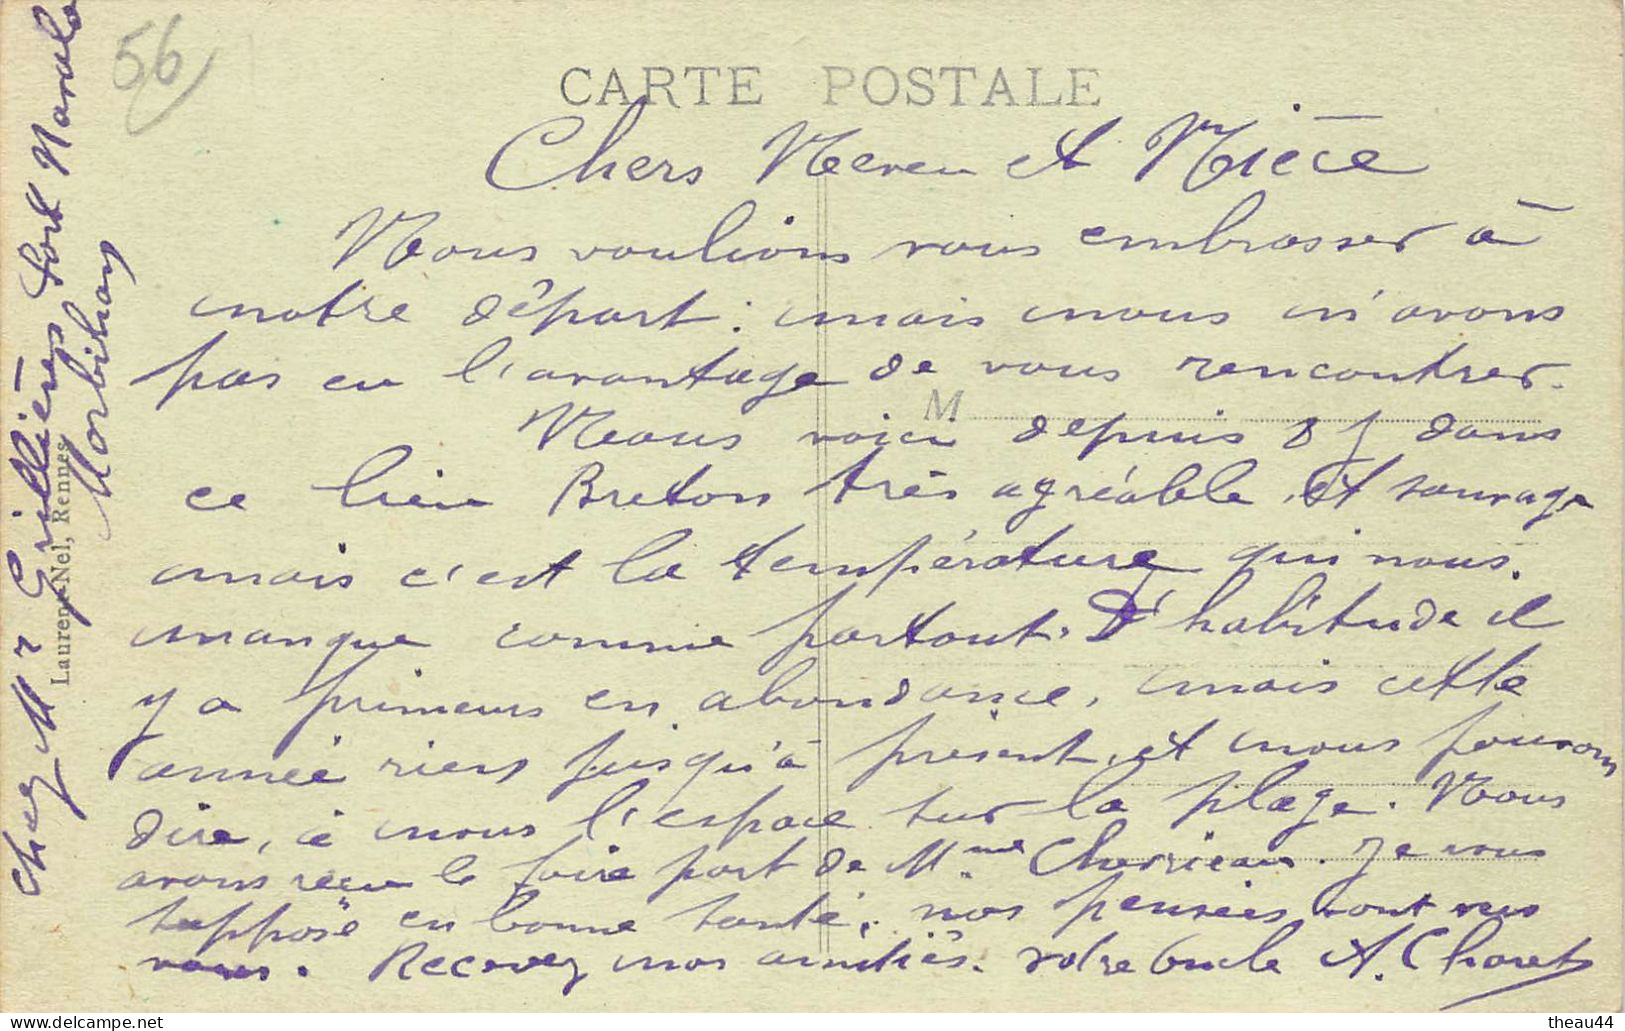 56
CARTE POSTALE
Chers Neveu et Nièce
Nous voulions vous embrasser à
notre départ. mais nous n'avons
pas eu l'avantage de vous rencontrer.
M
Nous voici depuis 8 j dans
ce lieu Breton très agréable, et sauvage
mais c'est la température qui nous.
manque comme partout. D'habitude il
y a primeurs en abondance, mais cette
année riens jusqu'à présent, et nous pouvons
dire, à nous l'espace sur la plage. Nous
avons reçu le faire part de Mme. Je vous
suppose en bonne santé, nos pensées vont vers
vous. Recevez nos amitiés. votre Oncle A. Charet
Chez Mr Grillières Port Navalo
Morbihan
Laurent-Nel, Rennes
theau44